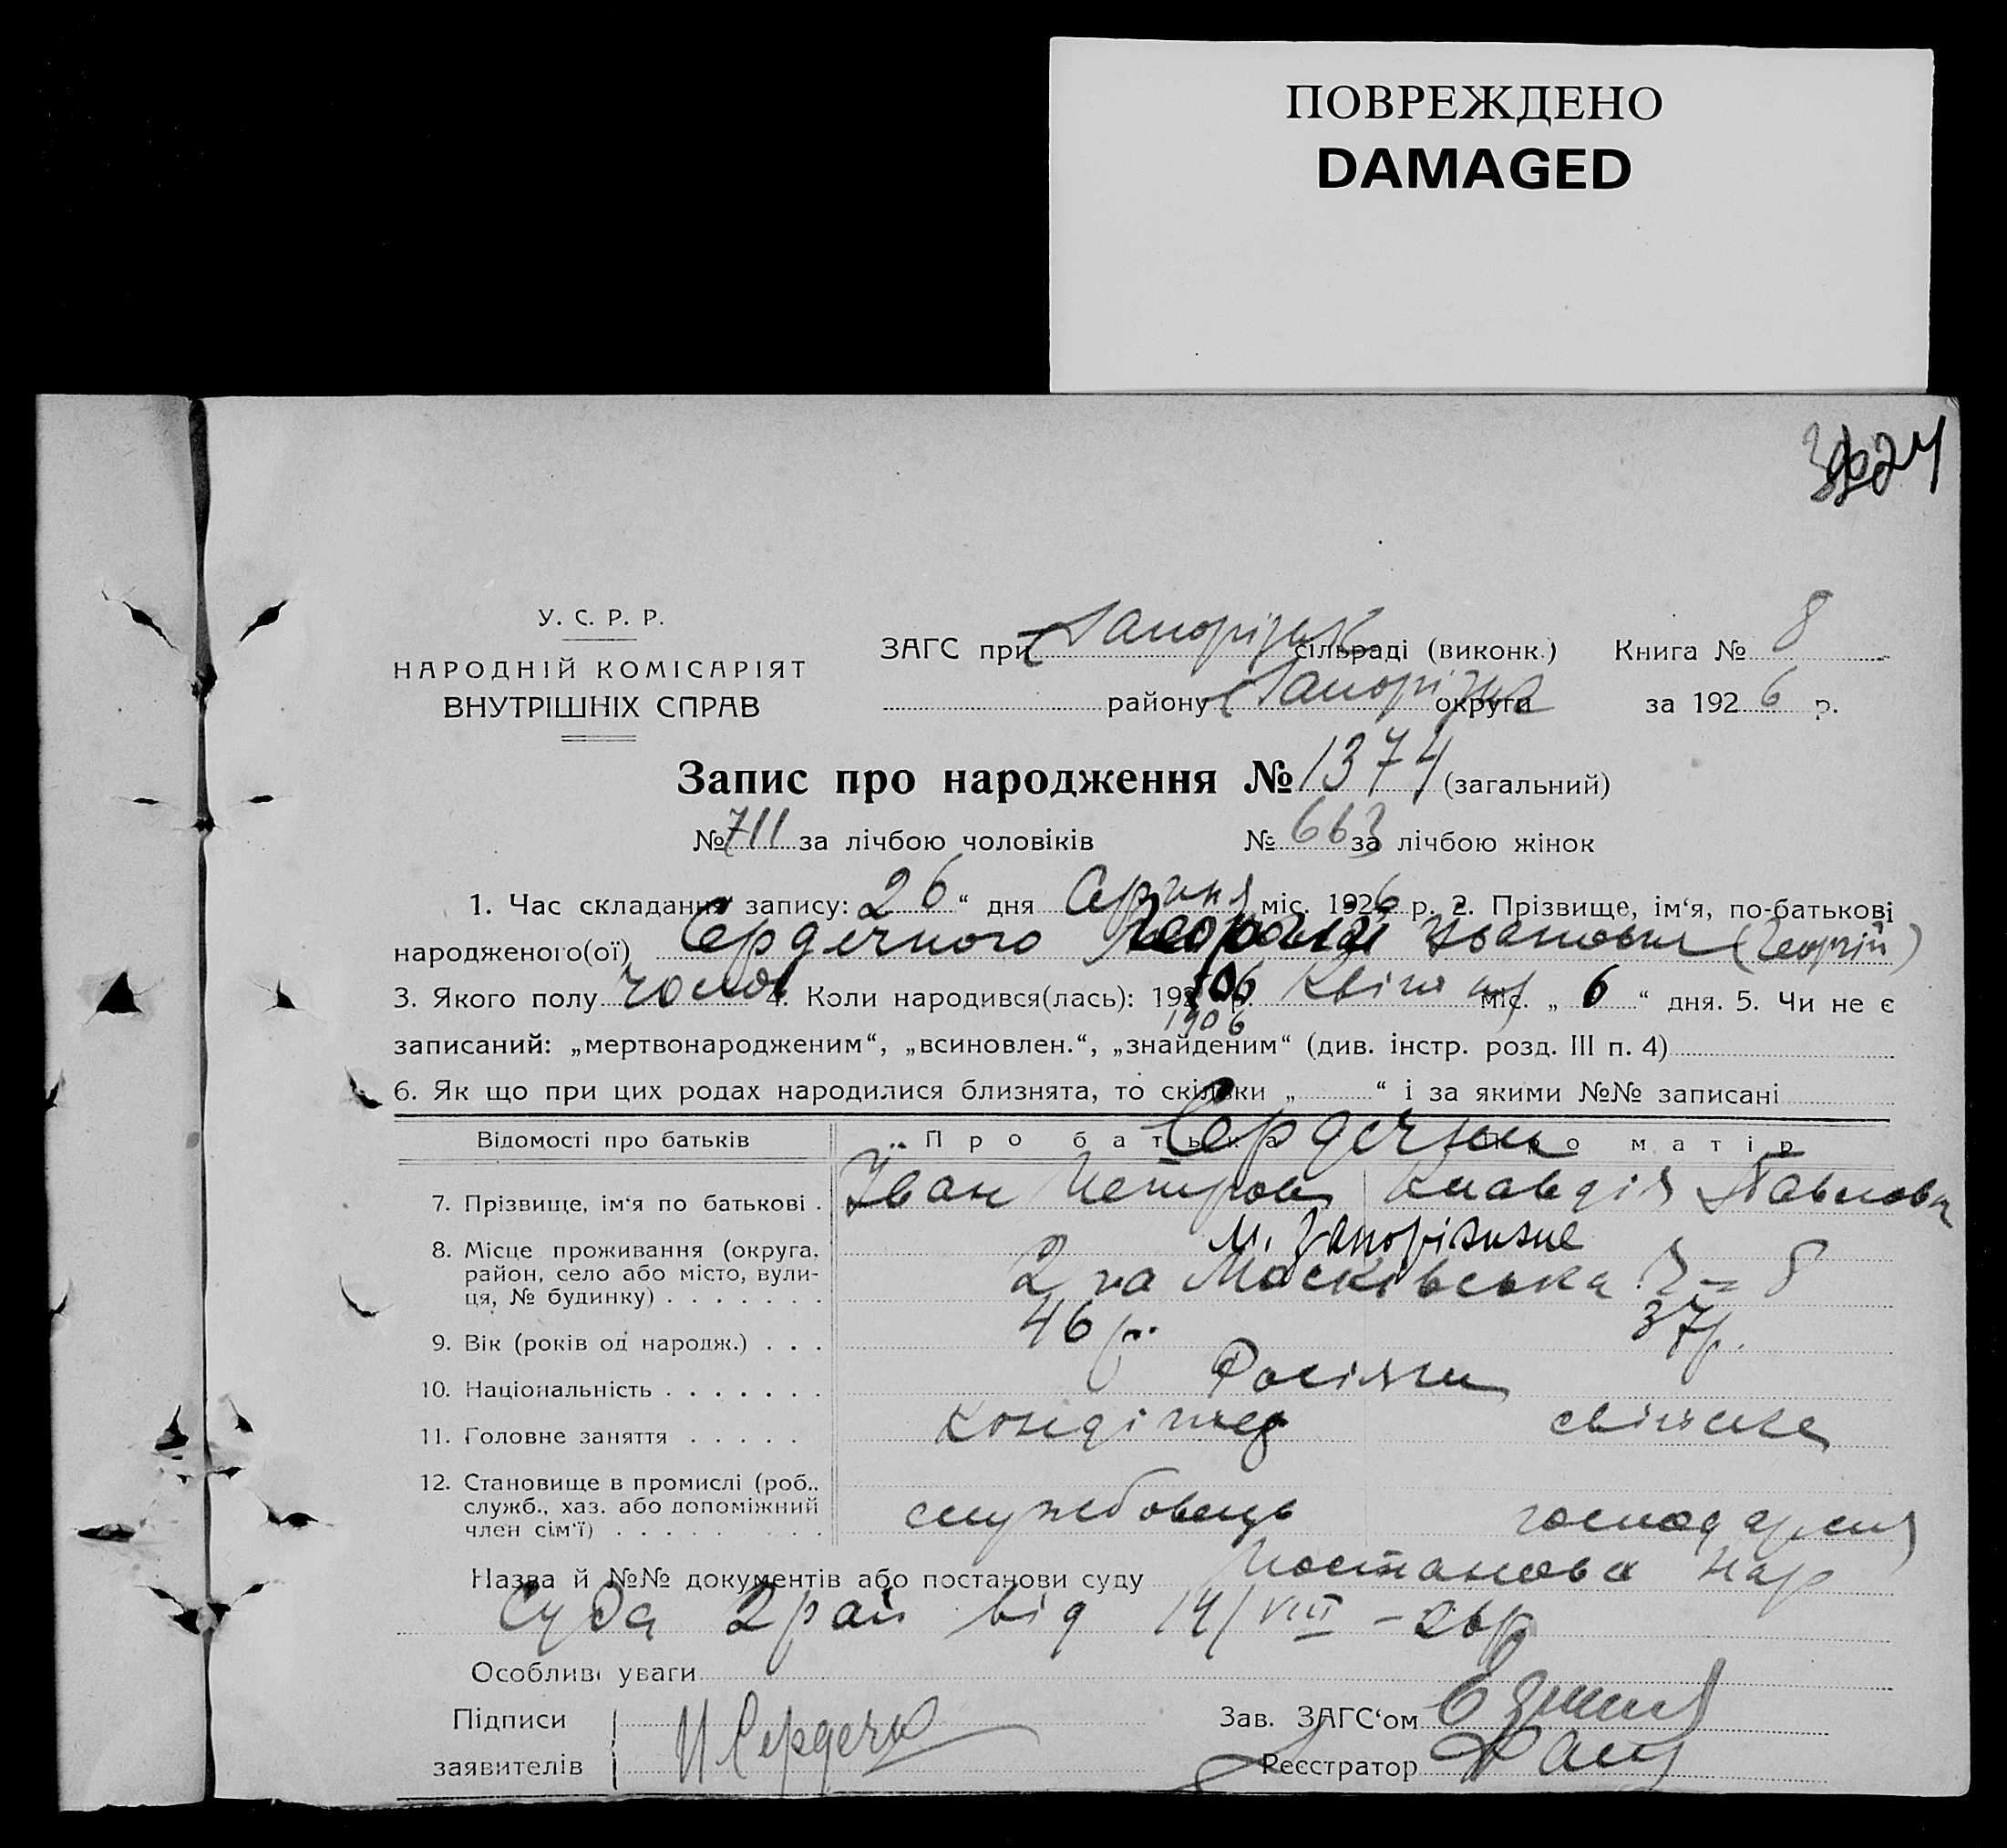 ПОВРЕЖДЕНО
DAMAGED
У. С. Р. Р.
НАРОДНІЙ КОМІСАРІЯТ
ВНУТРІШНІХ СПРАВ
ЗАГС при Запорізьк сільраді (виконк.) Книга № 8
району Запорізька округи за 1926 р.
Запис про народження № 1374 (загальний)
№ 711 за лічбою чоловіків № 663 за лічбою жінок
1. Час складання запису: 26 “ дня Серпня міс. 1926 р. 2. Прізвище, ім‘я, по-батькові
народженого(ої) Сердечного Іванович (Георгій)
3. Якого полу чолов 4. Коли народився(лась): 1906 р. Квітня міс. „ 6 “ дня. 5. Чи не є
1906
записаний: „мертвонародженим“, „всиновлен.“, „знайденим“ (див. інстр. розд. III п. 4)
6. Як що при цих родах народилися близнята, то скільки „ “ і за якими №№ записані
Відомості про батьків Про батька Про матір
Сердечни
7. Прізвище, ім‘я по батькові . Іван Петров Клавдія Павловн
8. Місце проживання (округа. район, село або місто, вули-ця, № будинку) . . . . . . . м. Запоріжжє
2 га Московська 8
9. Вік (років од народж.) . . . 46 р. 37 р.
10. Національність . . . . . . . Росіяни
11. Головне заняття . . . . . кондітер
12. Становище в промислі (роб.. служб., хаз. або допоміжний член сім‘ї) . . . . . службовець господарка
Назва й №№ документів або постанови суду Постанова Нар
Суда 2 рай від 14/VIII – 26 р
Особливі уваги
Підписи И Сердечн Зав. ЗАГС‘ом
заявителів Реєстратор